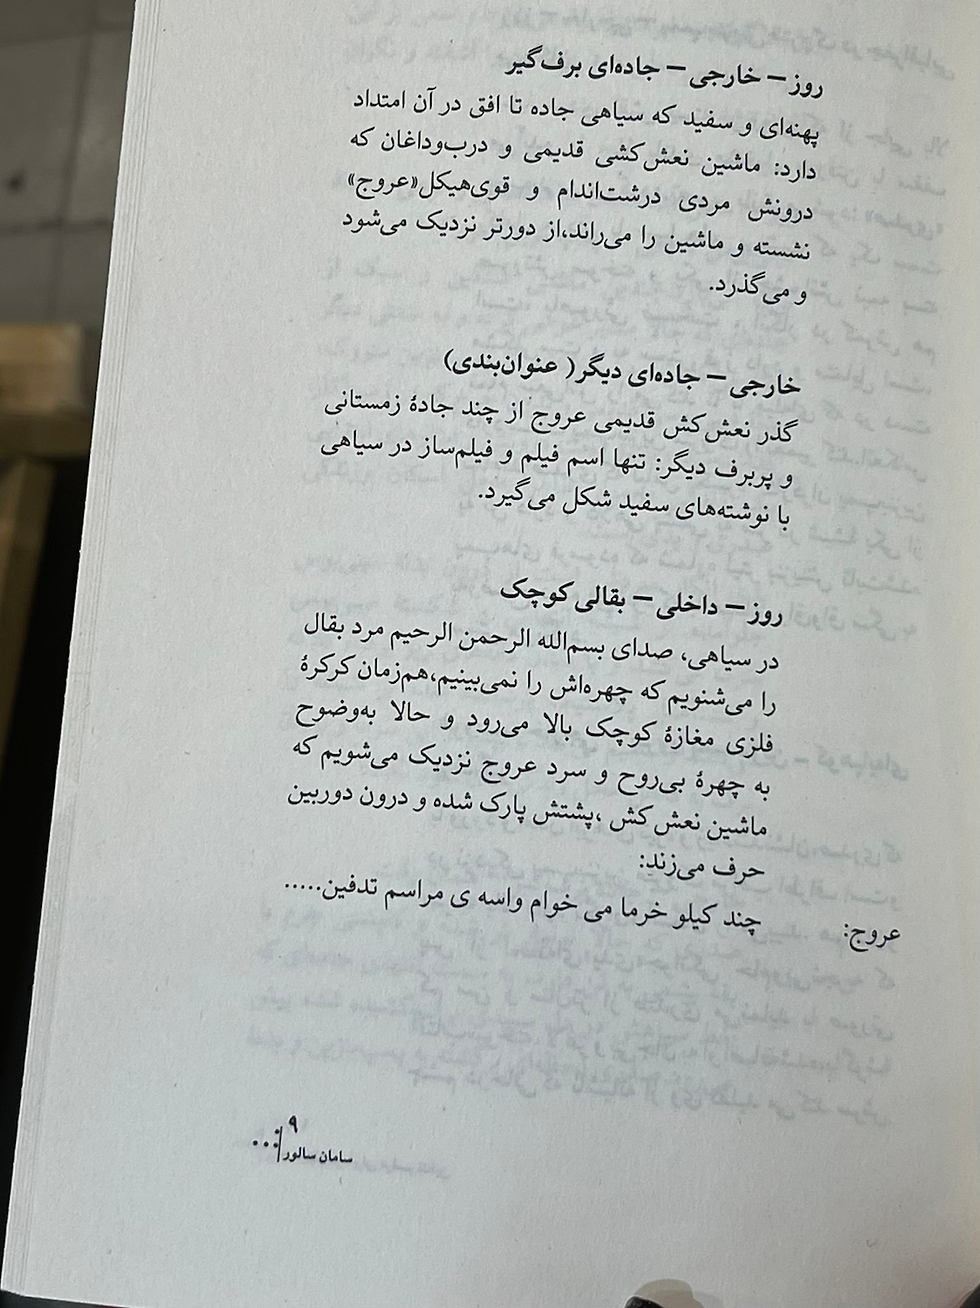 روز – خارجی – جاده‌ای برف‌گیر
پهنه‌ای و سفید که سیاهی جاده تا افق در آن امتداد
دارد: ماشین نعش‌کشی قدیمی و درب‌وداغان که
درونش مردی درشت‌اندام و قوی‌هیکل«عروج»
نشسته و ماشین را می‌راند،از دورتر نزدیک می‌شود
و می‌گذرد.
خارجی – جاده‌ای دیگر( عنوان‌بندی)
گذر نعش‌کش قدیمی عروج از چند جادهٔ زمستانی
و پربرف دیگر: تنها اسم فیلم و فیلم‌ساز در سیاهی
با نوشته‌های سفید شکل می‌گیرد.
روز – داخلی – بقالی کوچک
در سیاهی، صدای بسم‌الله الرحمن الرحیم مرد بقال
را می‌شنویم که چهره‌اش را نمی‌بینیم،هم‌زمان کرکرهٔ
فلزی مغازهٔ کوچک بالا می‌رود و حالا به‌وضوح
به چهرهٔ بی‌روح و سرد عروج نزدیک می‌شویم که
ماشین نعش‌کش ،پشتش پارک شده و درون دوربین
حرف می‌زند:
عروج: چند کیلو خرما می خوام واسه ی مراسم تدفین.....
۹
سامان سالور